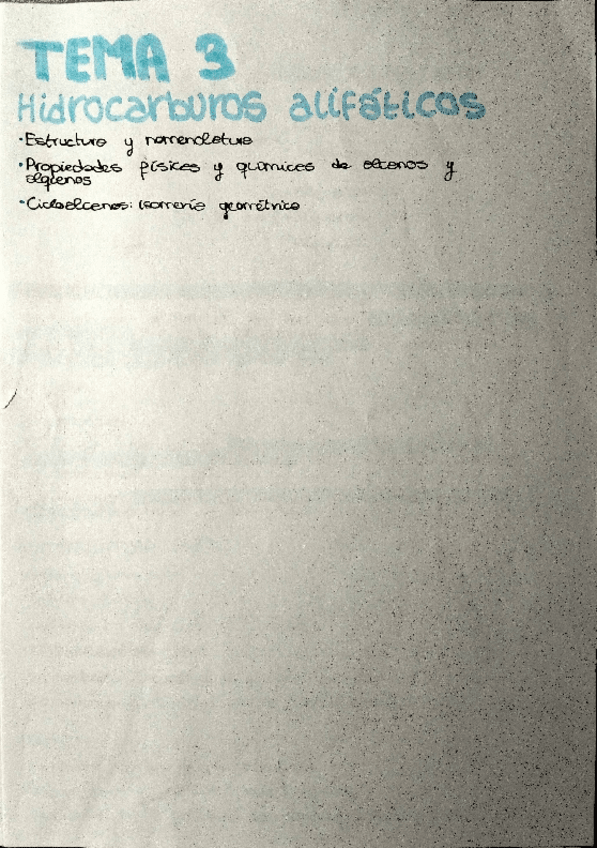 TEMA 3
Hidrocarburos alifáticos
· Estructura y nomenclatura
· Propiedades físicas y químicas de alcanos y
alquenos
· Cicloalcanos: isomería geométrica